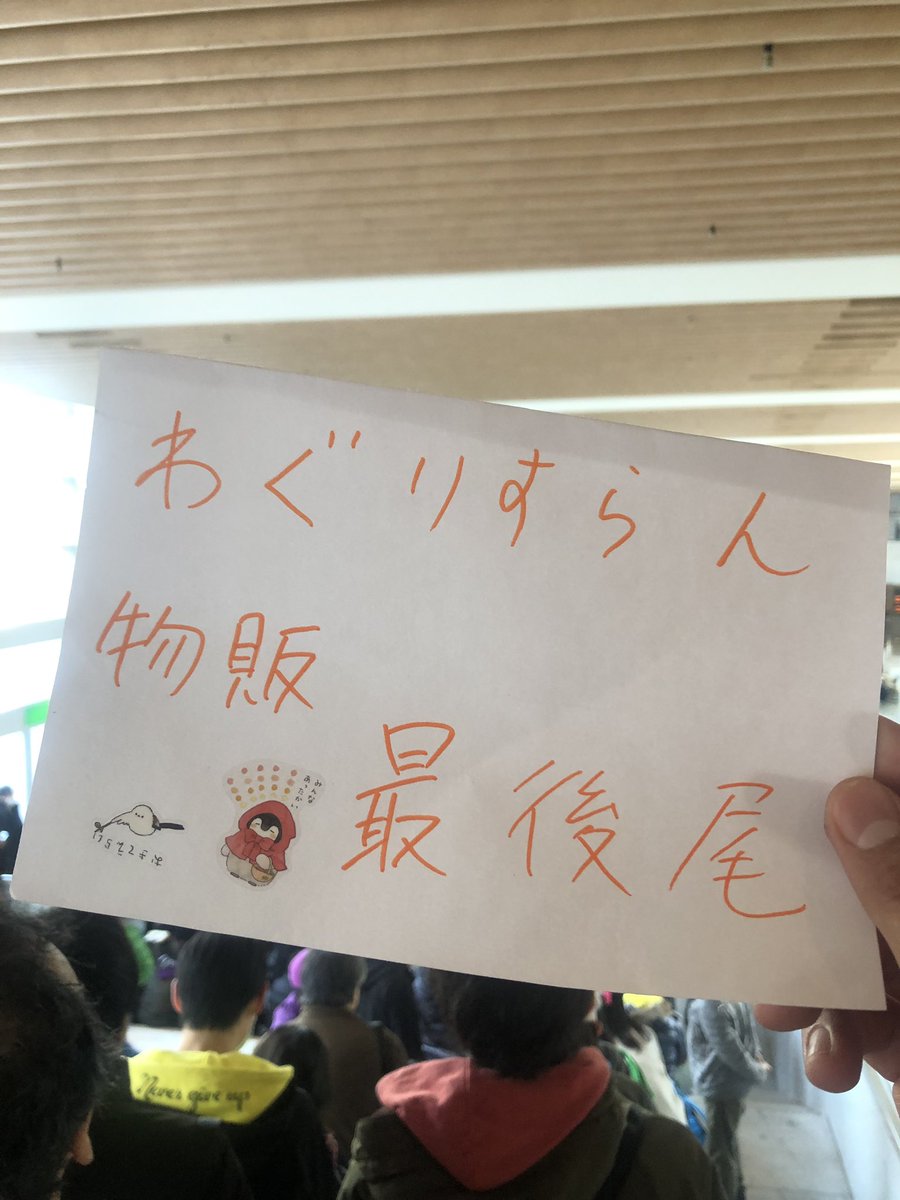 わぐりすらん
物販
最後尾
みんな
あったかい
Never give up